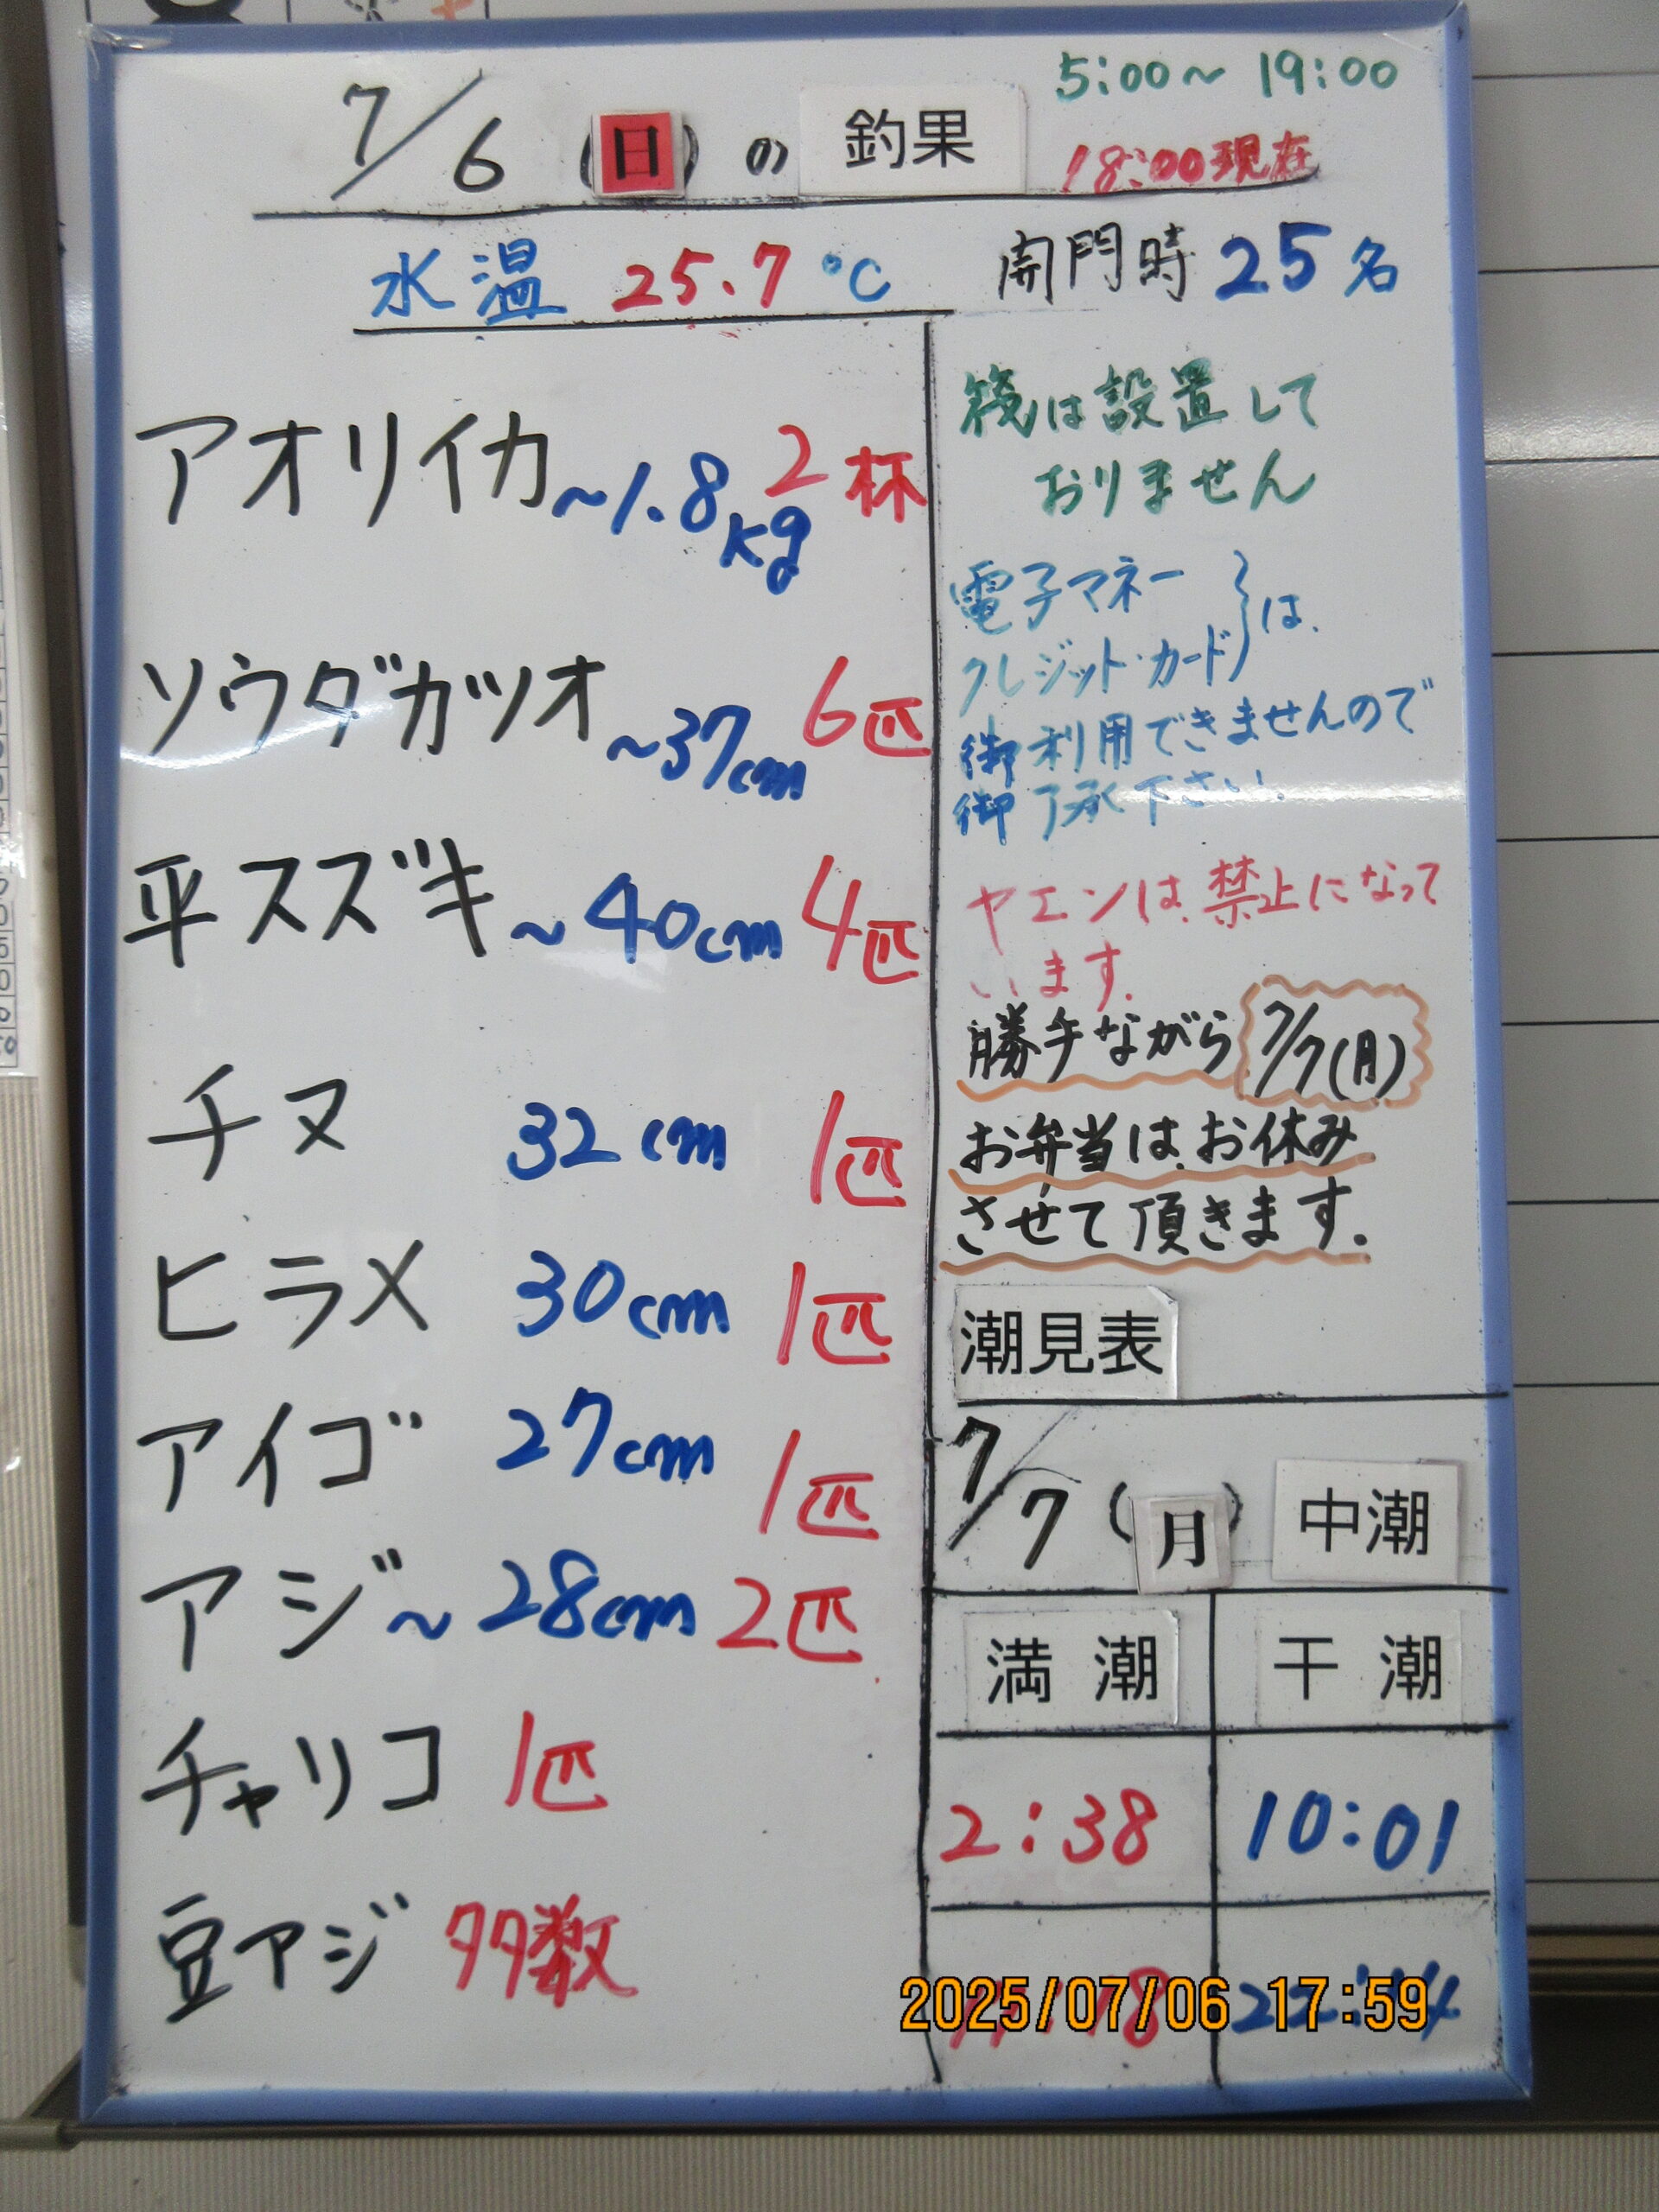 5:00～19:00
7/6(日)の釣果
18:00現在
水温 25.7℃
開門時25名
アオリイカ～1.8kg 2杯
ソウダガツオ～37cm 6匹
平スズキ～40cm 4匹
チヌ 32cm 1匹
ヒラメ 30cm 1匹
アイゴ 27cm 1匹
アジ～28cm 2匹
チャリコ 1匹
豆アジ 多数
筏は設置して
おりません
電子マネー
クレジット・カード}は、
御利用できませんので
御了承下さい.
ヤエンは、禁止になって
います.
勝手ながら7/7(月)
お弁当は、お休み
させて頂きます.
潮見表
7/7(月) 中潮
満潮 干潮
2:38 10:01
2025/07/06 17:59